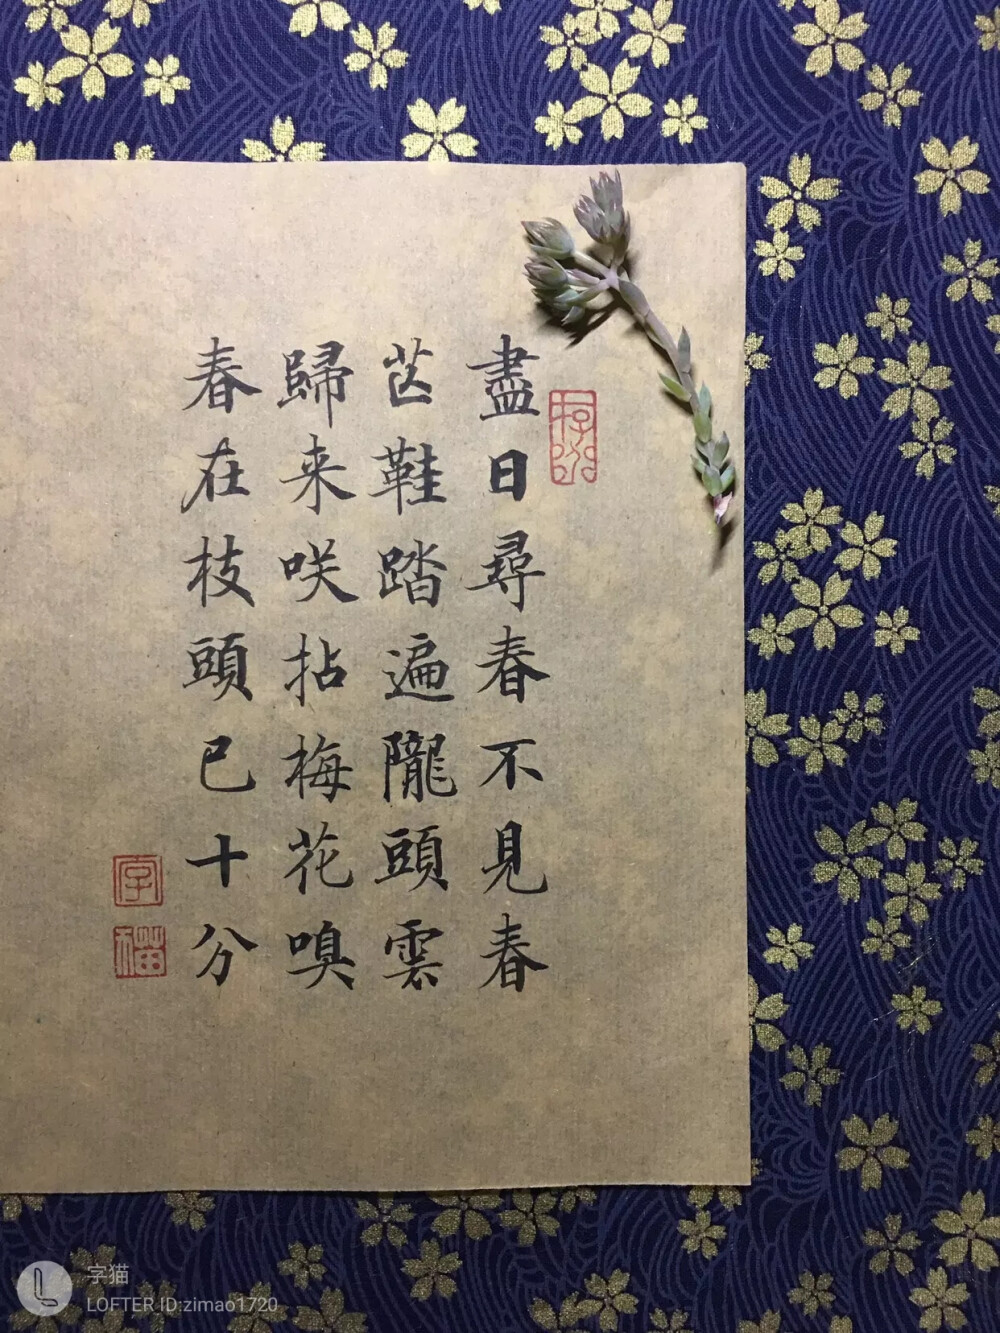 盡日尋春不見春
芒鞋踏遍隴頭雲
歸来咲拈梅花嗅
春在枝頭已十分
字
猫
字猫
LOFTER ID:zimao1720